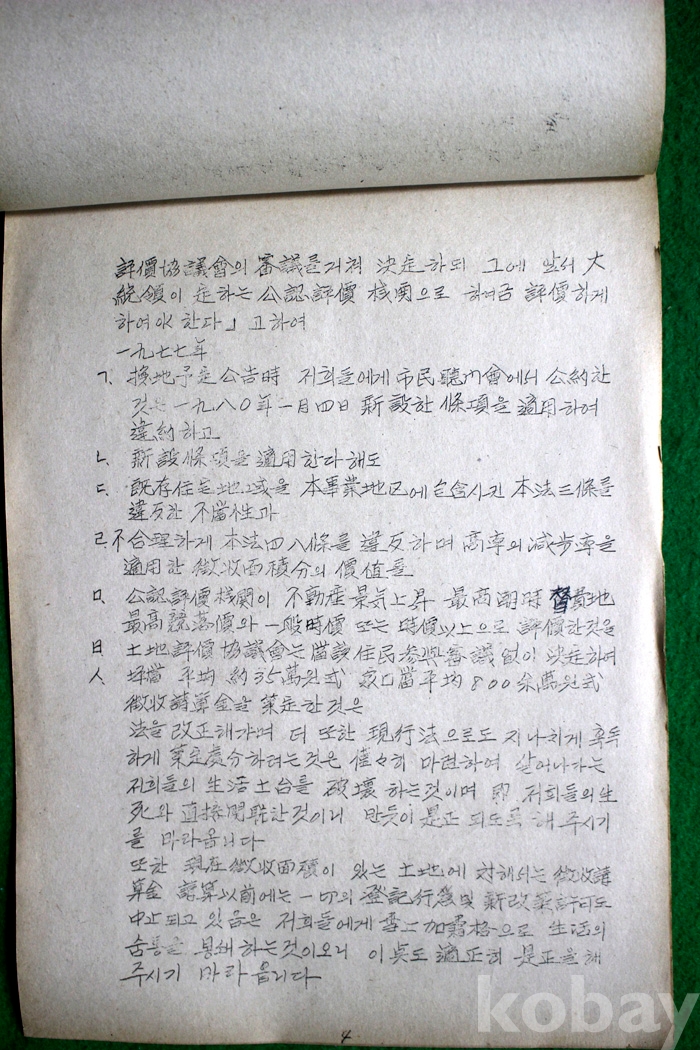 評價協議會의 審議를 거쳐 決定하되 그에 앞서 大
統領이 定하는 公認評價 機關으로 하여금 評價하게
하여야 한다」고하여
一九七七年
ㄱ. 換地予定公告時 저희들에게 市民聽門會에서 公約한
것은 一九八〇年一月四日 新設한 條項을 適用하여
違約하고
ㄴ. 新設條項을 適用한다 해도
ㄷ. 既存住宅地域을 本事業地区에 包含시킨 本法三條를
違反한 不當性과
ㄹ. 不合理하게 本法四八條를 違反하며 高率의 減步率을
適用한 徵收面積分의 價値를
ㅁ. 公認評價機關이 不動産景気上昇 最高潮時 替費地
最高競落價와 一般時價 또는 時價以上으로 評價한것을
ㅂ 土地評價協議會는 當該住民參與審議 없이 決定하여
ㅅ 坪當 平均 約35萬원式 家口當平均 800余萬원式
徵收請算金을 策定한것은
法을 改正해가며 더 또한 現行法으로도 지나치게 혹독
하게 策定處分하려는것은 僅々히 마련하여 살어나가는
저희들의 生活土台를 破壞하는것이며 即 저희들의 生
死와 直接関聯한것이니 반듯이 是正 되도록 해 주시기
를 바라옵니다
또한 現在徵收面積이 있는 土地에 対해서는 徵收請
算金 請算以前에는 一切의 登記行為및 新改築許可도
中止되고 있음은 저희들에게 雪上加霜格으로 生活의
숨통을 봉쇄하는것이오니 이点도 適正히 是正을 해
주시기 바라옵니다
4
kobay